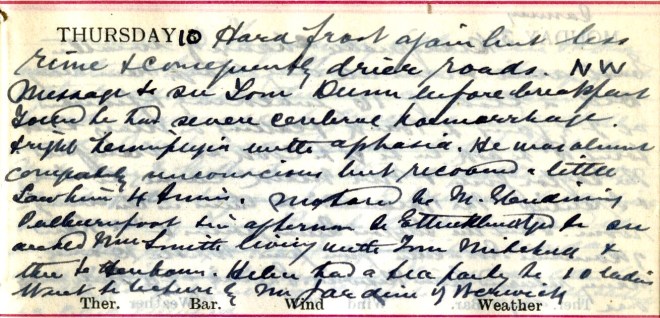 THURSDAY 10 Hard frost again but less
rime & consequently drier roads. NW
Message to see Tom Dunn before breakfast
found he had severe cerebral haemorrhage
& right hemiplegia with aphasia. He was almost
completely unconscious but recovered a little
Saw him 4 times. Motored to
in afternoon to Ettrickbridge to see
Smith living with Tom Mitchell &
then to Helen had a tea party to 10 ladies
Went to by Mr Jardine of Berwick
Ther. Bar. Wind Weather